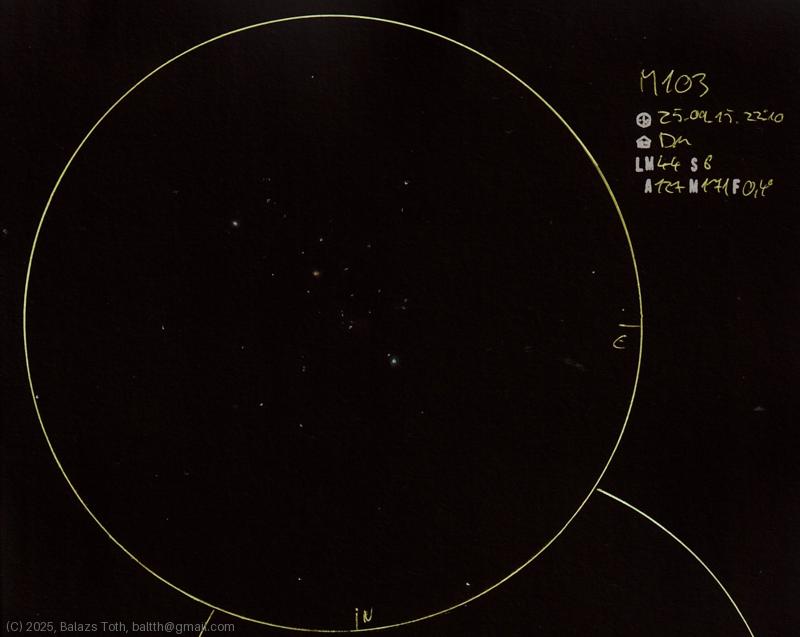 M103
25.09.15. 22:10
LM 4.4 S 6
A 127 M 171 F 0,4°
E
N
(C) 2025, Balazs Toth, baltth@gmail.com